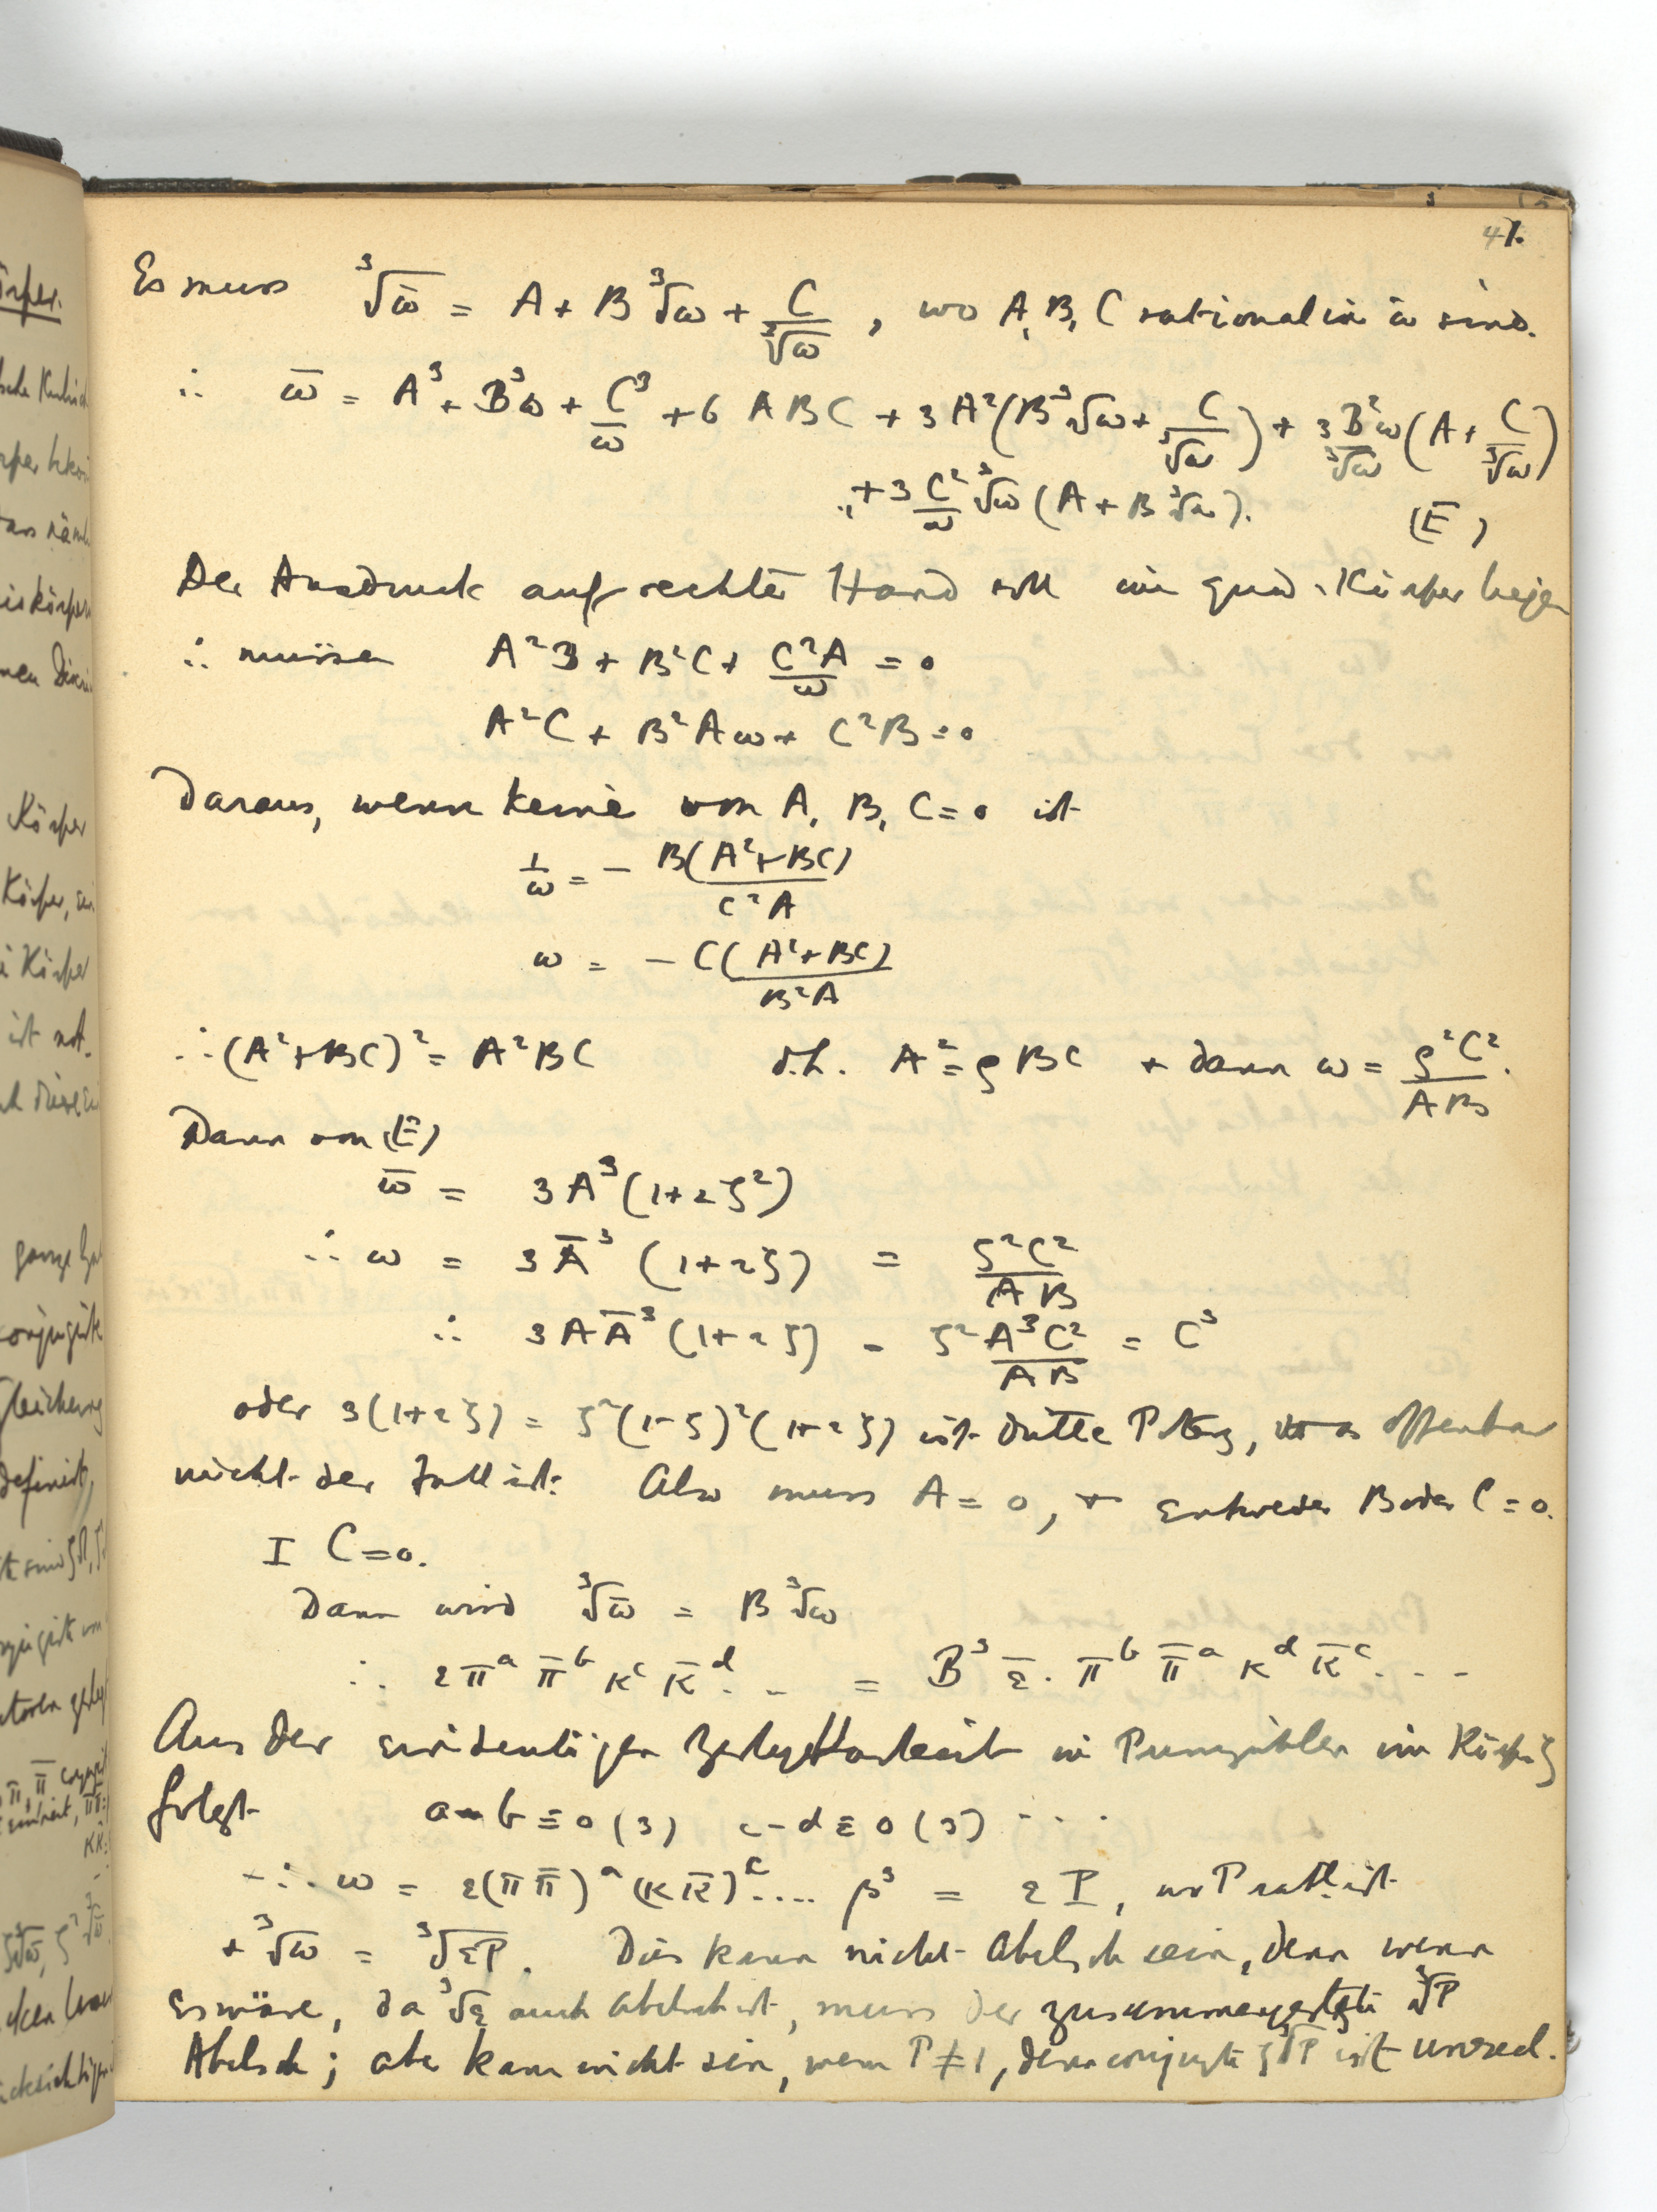 47.
Es muss ∛ω̄ = A + B ∛ω + C/∛ω , wo A, B, C rational in ω sind.
∴ ω̄ = A³ + B³ω + C³/ω + 6 ABC + 3A²(B ∛ω + C/∛ω) + 3B²ω/∛ω (A + C/∛ω)
+ 3 C²/ω ∛ω (A + B ∛ω). (E)
Der Ausdruck auf rechter Hand soll im quad. Körper liegen
∴ müssen A²B + B²C + C²A/ω = 0
A²C + B²Aω + C²B = 0
Daraus, wenn keine von A, B, C = 0 ist
1/ω = − B(A²+BC)/C²A
ω = − C(A²+BC)/B²A
∴ (A²+BC)² = A²BC d.h. A² = ζBC + dann ω = ζ²C²/AB.
Dann von (E)
ω̄ = 3A³(1+2ζ²)
∴ ω = 3Ā³ (1+2ζ) = ζ²C²/AB
∴ 3AĀ³(1+2ζ) = ζ² A³C²/AB = C³
oder 3(1+2ζ) = ζ²(1−ζ)²(1+2ζ) ist dritte Potenz, was offenbar
nicht der Fall ist. Also muss A = 0, + entweder B oder C = 0.
I C = 0.
Dann wird ∛ω̄ = B ∛ω
∴ ε π^a π̄^b κ^c κ̄^d . . = B³ ε̄ . π^b π̄^a κ^d κ̄^c . . .
Aus der eindeutigen Zerlegbarkeit in Primzahlen im Körper ζ
folgt a − b ≡ 0 (3) c − d ≡ 0 (3) . . . .
∴ ω = ε(π π̄)^a (κ κ̄)^c .... β³ = ε P, wo P ratl. ist
+ ∛ω = ∛εP. Dies kann nicht Abelsch sein, denn wenn
es wäre, da ∛ε auch Abelsch ist, muss der zusammengesetzte ∛P
Abelsch; aber kann nicht sein, wenn P ≠ 1, denn conjugte ζ∛P ist unreel.
Körper
Körper,
Körper
ist not.
definirt,